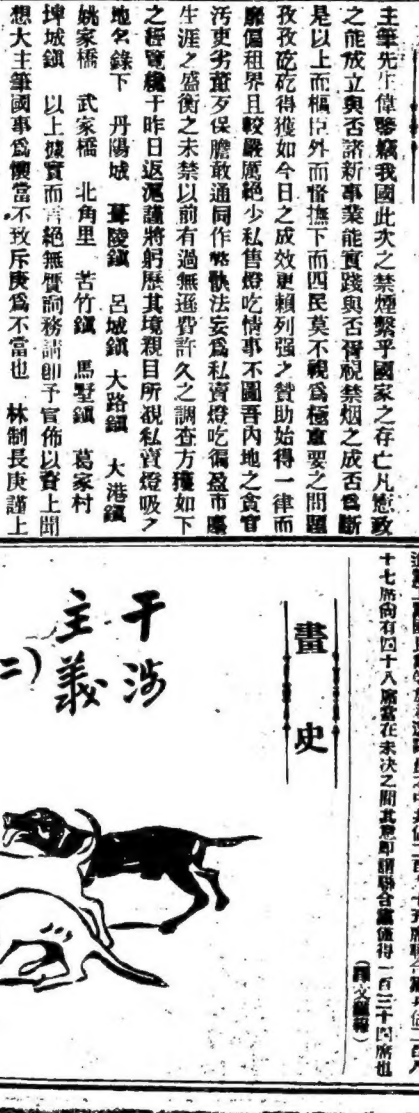 主筆先生偉鑒竊我國此次之禁煙繫乎國家之存亡凡憲政
之能成立與否諸新事業能實踐與否胥視禁烟之成否爲斷
是以上而樞臣外而督撫下而四民莫不視爲極重要之問題
孜孜矻矻得獲如今日之成效更賴列强之贊助始得一律而
廓偏租界且較嚴厲絶少私售燈吃情事不圖吾内地之貪官
汚吏劣董歹保膽敢通同作弊法妄爲私賣燈吃徧盈市廛
生涯之盛衡之未禁以前有過無遜費許久之調查方獲如下
之經覽纔于昨日返滬謹將躬歷其境親目所覩私賣燈吸之
地名錄下 丹陽城 陵鎭 呂城鎭 大路鎭 大港鎭
姚家橋 武家橋 北角里 苦竹鎭 馬墅鎭 葛家村
埤城鎭 以上據實而言絶無贗詞務請卽予宣佈以資上聞
想大主筆國事爲懷當不致斥庚爲不當也 林制長庚謹上
十七席尙有四十八席當在未决之間其意卽謂聯合黨僅得一百三十四席也
（譯文滙報）
畫史
干涉
主義
二）